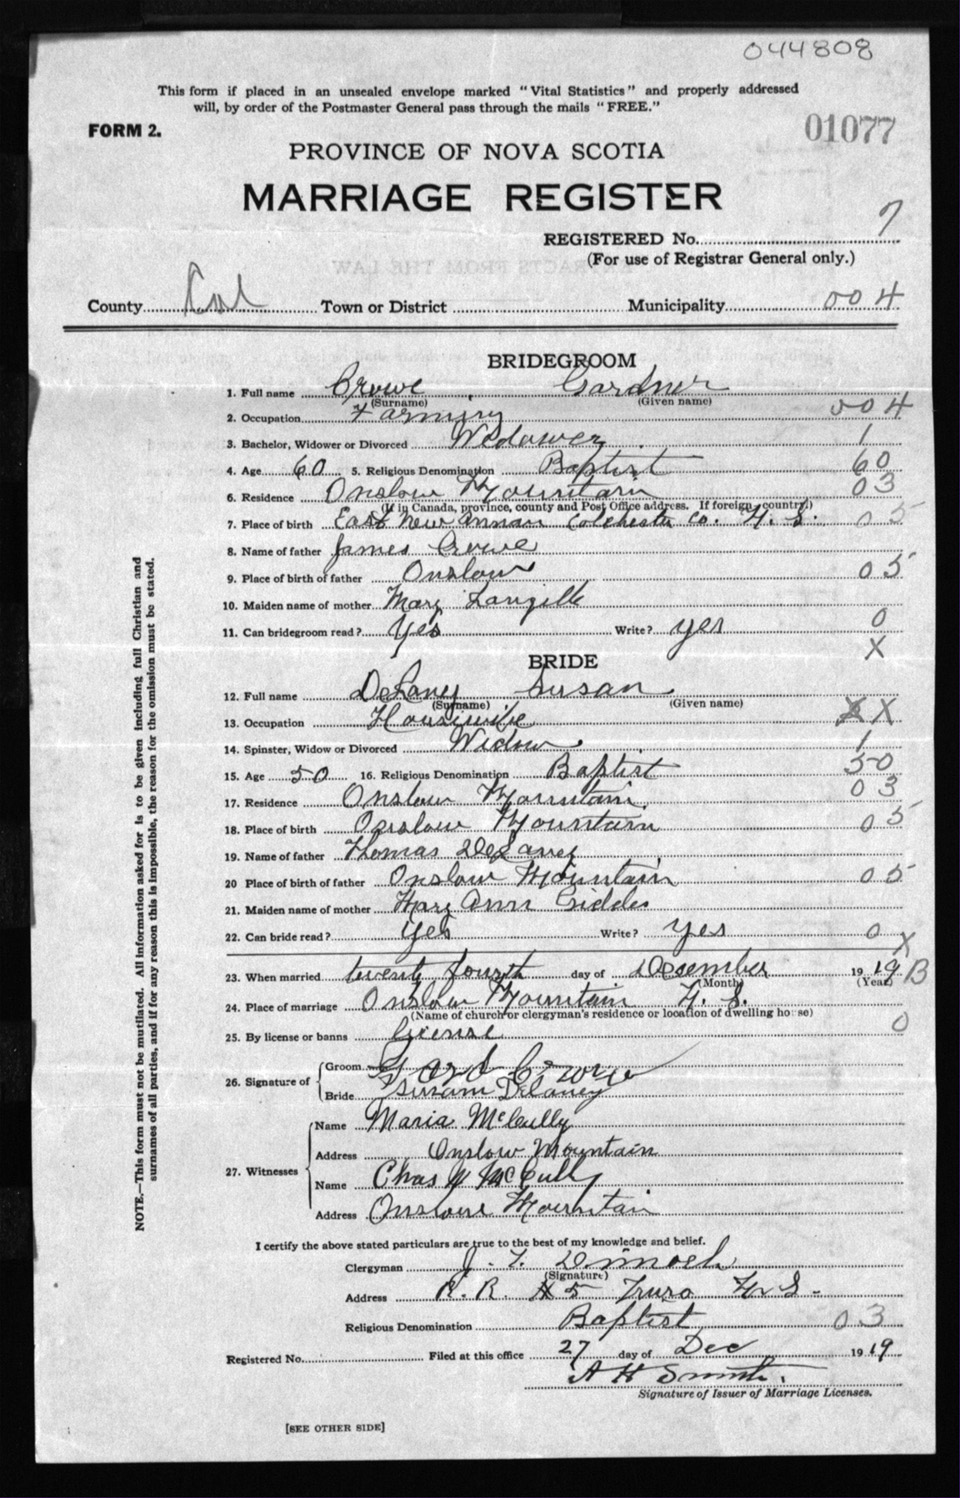 044808
This form if placed in an unsealed envelope marked "Vital Statistics" and properly addressed
will, by order of the Postmaster General pass through the mails "FREE."
FORM 2.
01077
PROVINCE OF NOVA SCOTIA
MARRIAGE REGISTER
REGISTERED No. 7
(For use of Registrar General only.)
County Col Town or District Municipality 004
BRIDEGROOM
1. Full name Crowe Gardner
(Surname) (Given name)
2. Occupation Farming 004
3. Bachelor, Widower or Divorced Widower 1
4. Age 60 5. Religious Denomination Baptist 60
6. Residence Onslow Mountain 03
(If in Canada, province, county and Post Office address. If foreign, country.)
7. Place of birth East New Annan Colchester Co. N. S. 05
8. Name of father James Crowe
9. Place of birth of father Onslow 05
10. Maiden name of mother Mary Langille
11. Can bridegroom read? Yes Write? yes 0
X
BRIDE
12. Full name DeLaney Susan
(Surname) (Given name)
13. Occupation Housewife X X
14. Spinster, Widow or Divorced Widow 1
15. Age 50 16. Religious Denomination Baptist 50
17. Residence Onslow Mountain 03
18. Place of birth Onslow Mountain 05
19. Name of father Thomas DeLaney
20 Place of birth of father Onslow Mountain 05
21. Maiden name of mother Mary Ann Giddes
22. Can bride read? Yes Write? yes 0 X
23. When married twenty fourth day of Desember 1919 B
(Month) (Year)
24. Place of marriage Onslow Mountain N. S.
(Name of church or clergyman's residence or location of dwelling house)
25. By license or banns license 0
26. Signature of Groom Gard Crowe
Bride Susan Delaney
27. Witnesses Name Maria McCully
Address Onslow Mountain
Name Chas McCully
Address Onslow Mountain
I certify the above stated particulars are true to the best of my knowledge and belief.
Clergyman J. T. Dimock
(Signature)
Address R. R. # 5 Truro N. S.
Religious Denomination Baptist 03
Registered No. Filed at this office 27 day of Dec 1919
A H Smith.
Signature of Issuer of Marriage Licenses.
[SEE OTHER SIDE]
NOTE.—This form must not be mutilated. All information asked for is to be given including full Christian and
surnames of all parties, and if for any reason this is impossible, the reason for the omission must be stated.